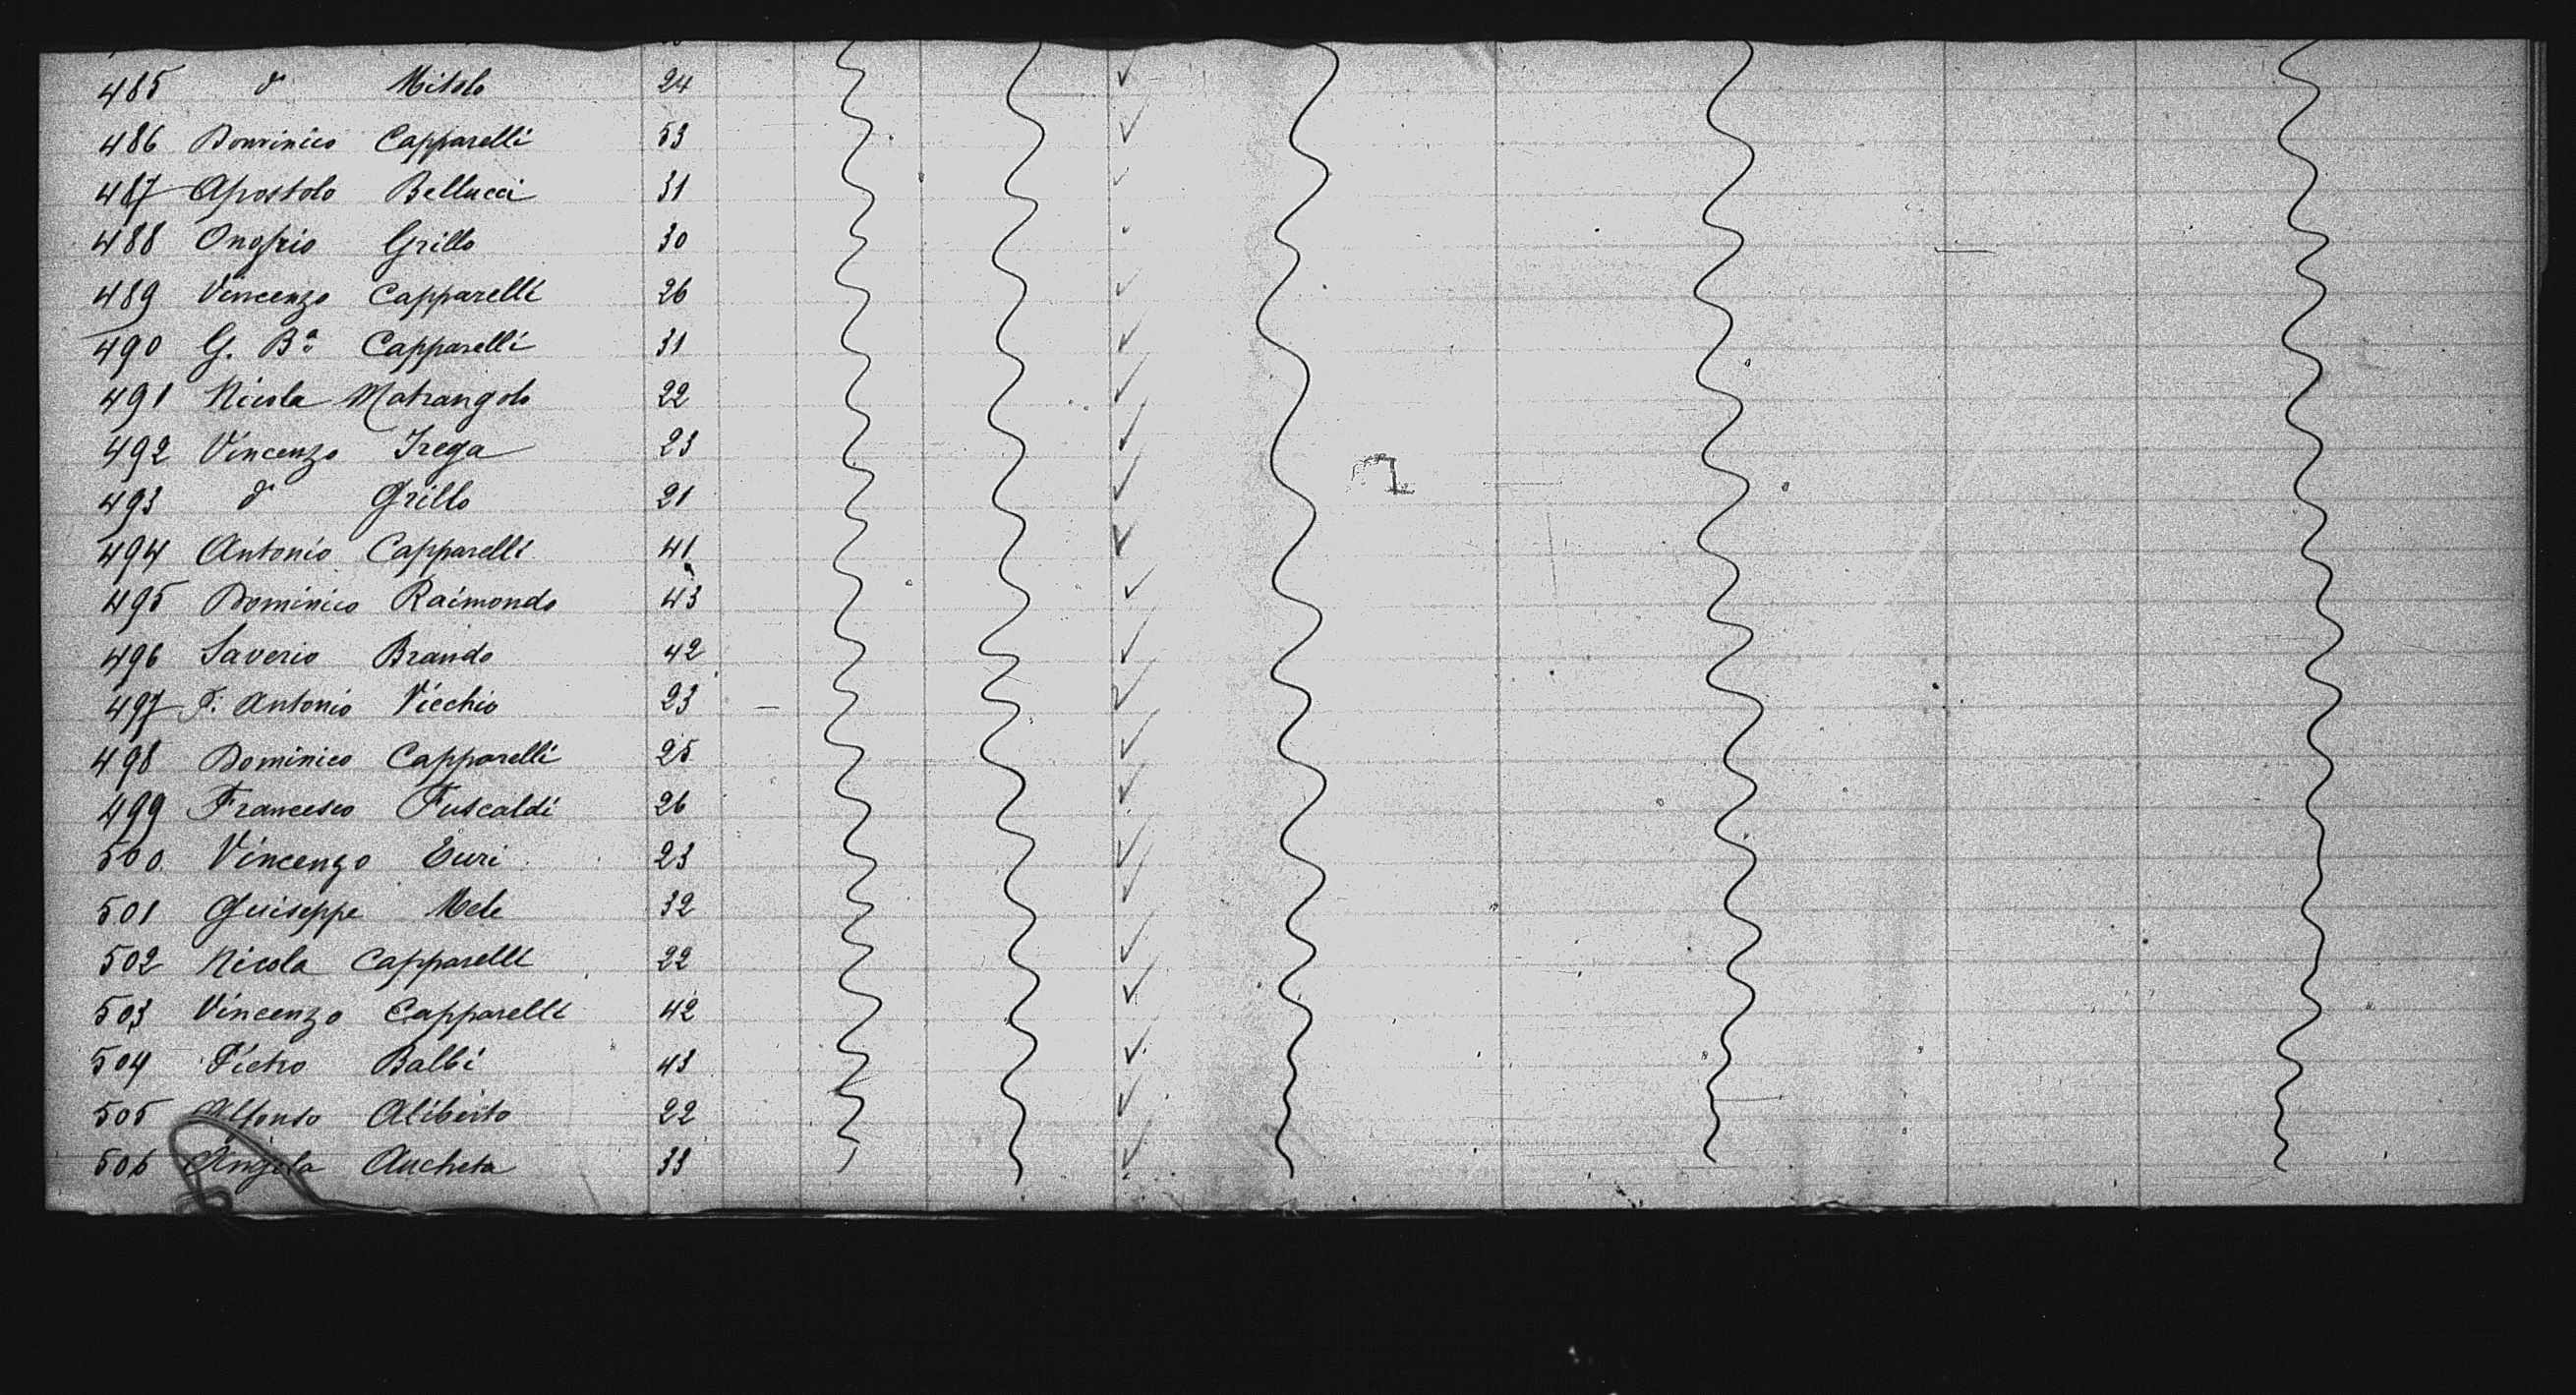 485 do Mitolo 24
486 Dominico Capparelli 53
487 Apostolo Bellucci 31
488 Onofrio Grillo 30
489 Vincenzo Capparelli 26
490 G. Ba Capparelli 31
491 Nicola Matrangolo 22
492 Vincenzo Frega 23
493 do Grillo 21
494 Antonio Capparelli 41
495 Dominico Raimondo 43
496 Saverio Brando 42
497 F. Antonio Viechio 23
498 Dominico Capparelli 25
499 Francesco Fuscaldi 26
500 Vincenzo Euri 23
501 Guiseppe Mele 32
502 Nicola Capparelli 22
503 Vincenzo Capparelli 42
504 Pietro Balbi 43
505 Alfonso Aliberto 22
506 Angela Aucheta 33